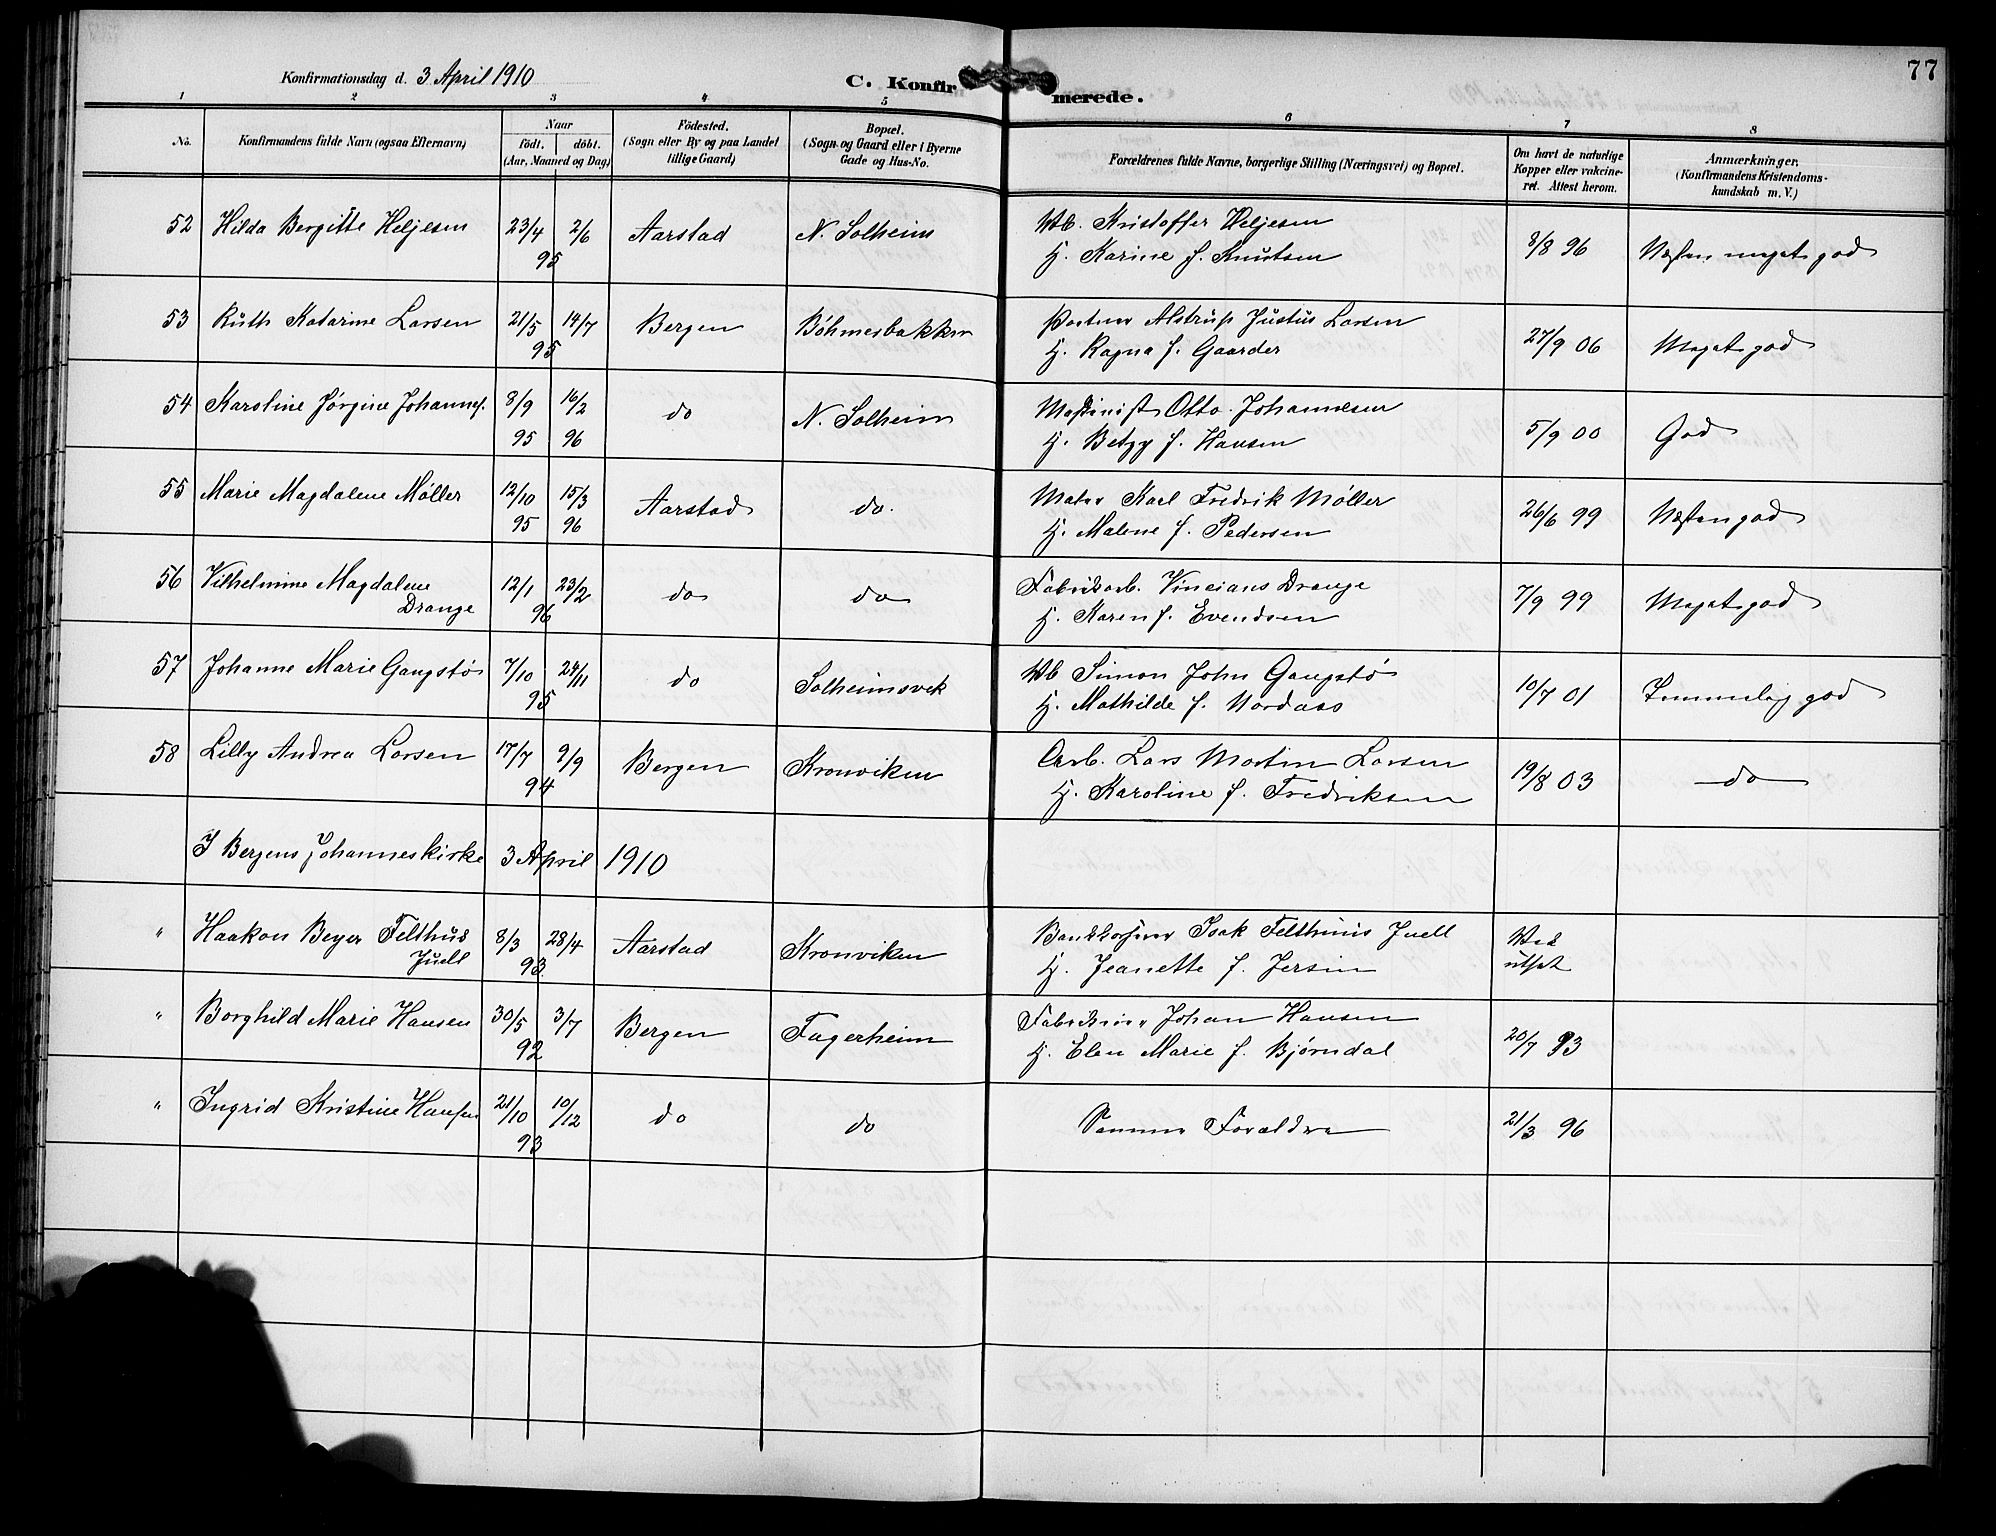 77
Konfirmationsdag d. 3 April 1910
C. Konfirmerede.
1 2 3 4 5 6 7 8
No.
Konfirmandens fulde Navn (ogsaa Efternavn)
Naar
födt. döbt.
(Aar, Maaned og Dag)
Födested.
(Sogn eller By og paa Landet
tillige Gaard)
Bopæl.
(Sogn og Gaard eller i Byerne
Gade og Hus-No.
Forældrenes fulde Navne, borgerlige Stilling (Næringsvei) og Bopæl.
Om havt de naturlige
Kopper eller vakcine-
ret. Attest herom.
Anmærkninger.
(Konfirmandens Kristendoms-
kundskab m. V.)
52 Hilda Bergitte Heljesen 23/4 2/6 95 Aarstad N. Solheim
Wb. Kristoffer Heljesen
H. Karine f. Knutsen
8/8 96 Næsten meget god
53 Ruth Katarine Larsen 21/5 14/7 95 Bergen Böhmesbakken
Alstrup Justus Larsen
H. Ragna f. Gaarder
27/9 06 Meget god
54 Karoline Jørgine Johannes. 8/9 95 16/2 96 do N. Solheim
Maskinist Otto Johannesen
H. Betzy f. Hansen
5/9 00 God
55 Marie Magdalene Møller 12/10 95 15/3 96 Aarstad do.
Maler Karl Fredrik Møller
H. Malene f. Pedersen
26/6 99 Næsten god
56 Vilhelmine Magdalene
Drange 12/1 23/2 96 do do
Fabrikarb. Drange
H. Karen f. Evendsen
7/9 99 Meget god
57 Johanne Marie Gangstø 7/10 24/11 95 do Solheimsvek
Wb Simon John Gangstø
H. Mathilde f. Nordaas
10/7 01 Temmelig god
58 Lilly Andrea Larsen 17/7 9/9 94 Bergen Kronviken
Arb. Lars Martin Larsen
H. Karoline f. Fredriksen
19/8 03 do
I Bergens Johanneskirke 3 April 1910
" Haakon Beyer Felthus
Juell 8/3 28/4 93 Aarstad Kronviken
Bankkasserer Isak Felthuus Juell
H. Jeanette f. Jersin
Ved
utsat
" Borghild Marie Hansen 30/5 3/7 92 Bergen Fagerheim
Johan Hansen
H. Elen Marie f. Bjørndal
20/7 93
" Ingrid Kristine Hansen 21/10 10/12 93 do do
Samme Forældre
21/3 96